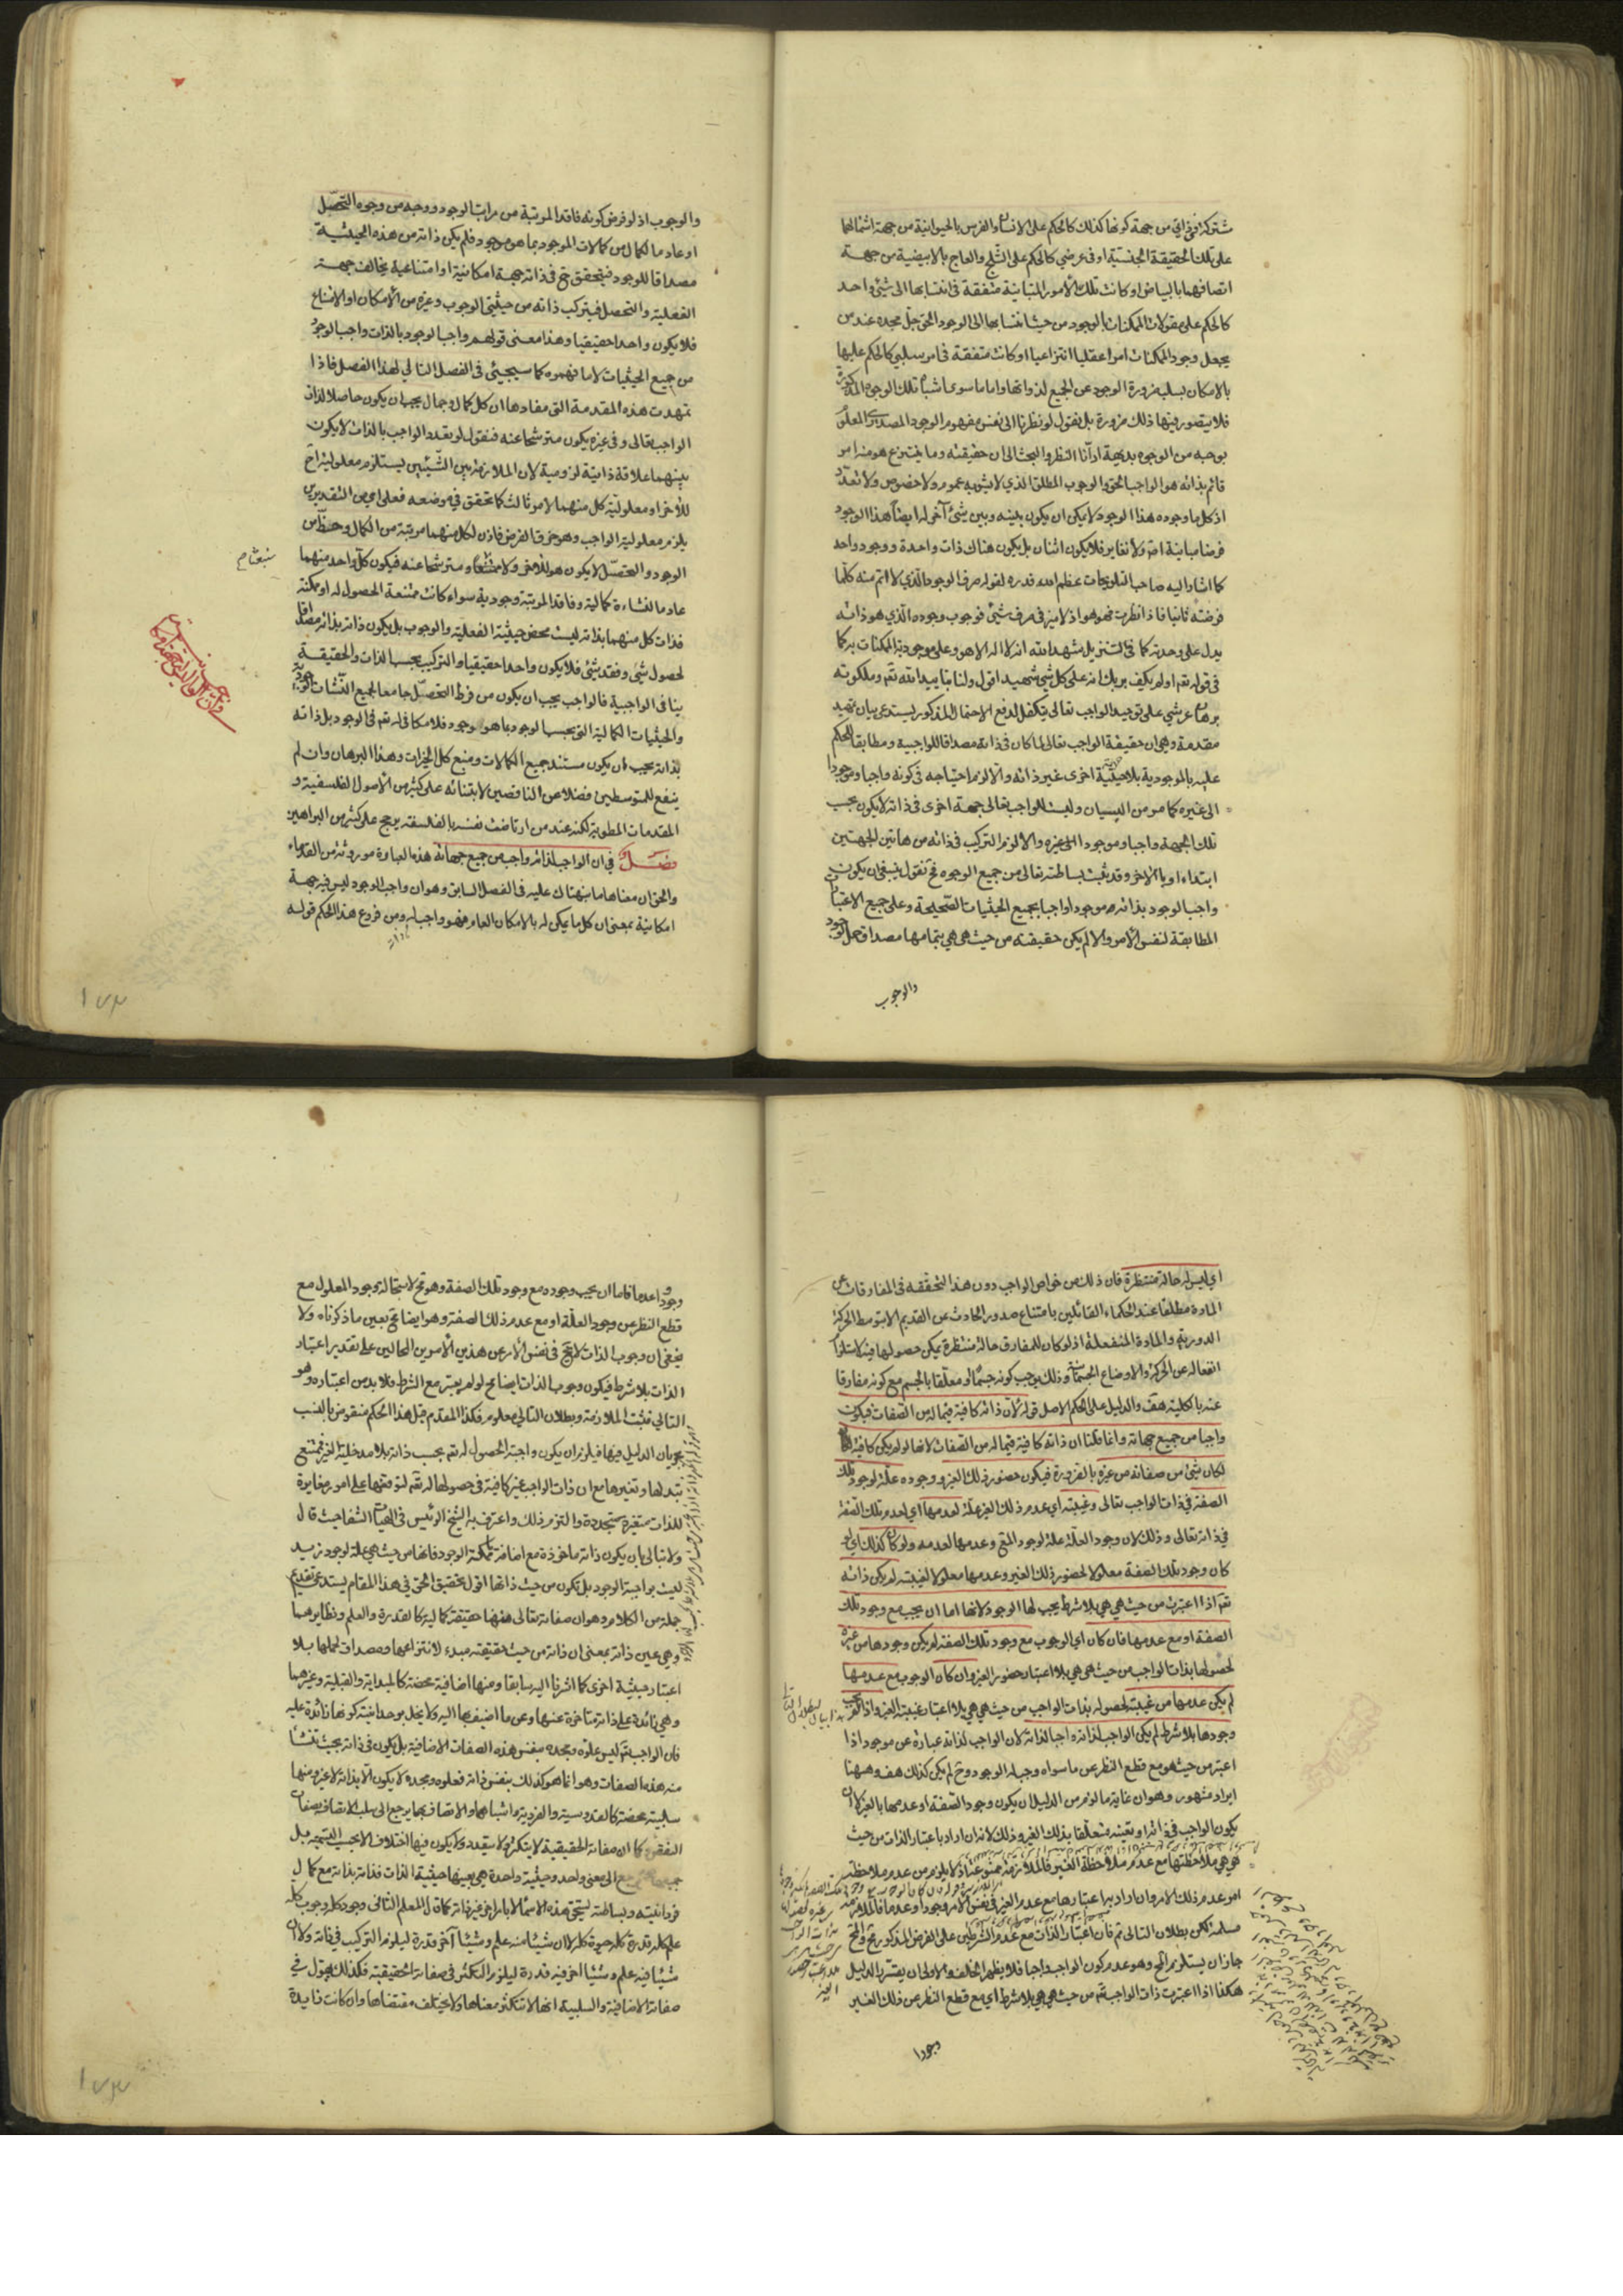 مشتركة في ذاتي من جهة كونها كذلك كالحكم على الانسان والفرس بالحيوانية من جهة اشتمالهما
على تلك الحقيقة الجنسية او في عرضي كالحكم على الثلج والعاج بالابيضية من جهة
اتصافهما بالبياض او كانت تلك الأمور المتباينة متفقة في انتسابها الى شئ واحد
كالحكم على مقولات الممكنات بالوجود من حيث انتسابها الى الوجود الحق جل مجده عند من
يجعل وجود الممكنات امرا عقليا انتزاعيا او كانت متفقة في امر سلبي كالحكم عليها
بالامكان بسلب ضرورة الوجود عن الجميع لذواتها واما ما سوى اشباه تلك الوجوه المذكورة
فلا يتصور فيها ذلك ضرورة بل نقول لو نظرنا الى نفس مفهوم الوجود المصدري المعلوم
بوجه من الوجوه بديهة ادّانا النظر والبحث الى ان حقيقته وما ينتزع هو منه امر
قائم بذاته هو الواجب الحق والوجوب المطلق الذي لا يشوبه عموم ولا خصوص ولا تعدد
اذ كل ما وجوده هذا الوجود لا يمكن ان يكون بينه وبين شئ آخر له ايضا هذا الوجود
فرضا مباينة اصلا ولا تغاير فلا يكون اثنان بل يكون هناك ذات واحدة ووجود واحد
كما اشار اليه صاحب التلويحات عظم الله قدره لقوله صرف الوجود الذي لا اتم منه كلما
فرضته ثانيا فاذا نظرت فهو هو اذ لا ميز في صرف شئ فوجوب وجوده الذي هو ذاته
يدل على وحدته كما في التنزيل شهد الله انه لا اله الا هو وعلى موجودية الممكنات به كما
في قوله تم اولم يكف بربك انه على كل شئ شهيد اقول ولنا بتاييد الله تم وملكوته
برهان عرشي على توحيد الواجب تعالى يتكفل لدفع الاحتمال المذكور يستدعي بيان تمهيد
مقدمة وهي ان حقيقة الواجب تعالى لما كان في ذاته مصداقا للواجبية ومطابقا للحكم
عليه بالموجودية بلا حيثية اخرى غير ذاته والا لزم احتياجه في كونه واجبا وموجودا
الى غيره كما مر من البيان وليست للواجب تعالى جهة اخرى في ذاته لا يكون بحسب
تلك الجهة واجبا وموجودا الى غيره والا لزم التركيب في ذاته من هاتين الجهتين
ابتداء او بالاخره وقد ثبت بساطته تعالى من جميع الوجوه فح نقول ينبغي ان يكون
واجب الوجود بذاته موجودا واجبا بجميع الحيثيات الصحيحة وعلى جميع الاعتبارات
المطابقة لنفس الأمر والا لم يكن حقيقته من حيث هي هي بتمامها مصداق حمل الوجود
والوجوب
والوجوب اذ لو فرض كونه فاقدا لمرتبة من مراتب الوجود ووجه من وجوه التحصّل
او عادما لكمال من كمالات الموجود بما هو موجود فلم يكن ذاته من هذه الحيثية
مصداقا للوجود فيتحقق ح في ذاته جهة امكانية او امتناعية يخالف جهة
الفعلية والتحصل فيتركب ذاته من حيثيتي الوجوب وغيره من الأمكان او الامتناع
فلا يكون واحدا حقيقيا وهذا معنى قولهم واجب الوجود بالذات واجب الوجود
من جميع الحيثيات لا ما فهموه كما سيجيئ في الفصل التالي لهذا الفصل فاذا
تمهدت هذه المقدمة التي مفادها ان كل كمال وجمال يجب ان يكون حاصلا لذات
الواجب تعالى وفي غيره يكون مترشحا عنه فنقول لو تعدد الواجب بالذات لا يكون
بينهما علاقة ذاتية لزومية لان الملازمة بين الشيئين يستلزم معلولية احد
للآخر او معلولية كل منهما لامر ثالث كما تحقق في موضعه فعلى اي من التقديرين
يلزم معلولية الواجب وهو خرق الفرض فاذن لكل منهما مرتبة من الكمال وحظ من
الوجود والتحصّل لا يكون هو للاخر ولا منبثقا ومترشحا عنه فيكون كل واحد منهما
عادما لنشاءة كمالية وفاقدا لمرتبة وجودية سواء كانت ممتنعة الحصول له او ممكنة
فذات كل منهما بذاته ليست محض حيثية الفعلية والوجوب بل يكون ذاته بذاته مصداقا
لحصول شئ وفقد شئ فلا يكون واحدا حقيقيا والتركيب بحسب الذات والحقيقة
ينافي الواجبية فالواجب يجب ان يكون من فرط التحصّل جامعا لجميع النشآت الوجودية
والحيثيات الكمالية التي بحسب الوجود بما هو موجود فلا مكافئ له تم في الوجود بل ذاته
بذاته يجب ان يكون مستند جميع الكمالات ومنبع كل الخيرات وهذا البرهان وان لم
ينفع للمتوسطين فضلا عن الناقصين لابتنائه على كثير من الأصول الفلسفية و
المقدمات المطوية لكنه عند من ارتاضت نفسه بالفلسفة يرجح على كثير من البراهين
فصل في ان الواجب لذاته واجب من جميع جهاته هذه العبارة موروثة من القدماء
والحق ان معناها ما نبهناك عليه في الفصل السابق وهو ان واجب الوجود ليس فيه جهة
امكانية بمعنى ان كل ما يمكن له بالامكان العام فهو واجب له ومن فروع هذا الحكم قوله
١٧٣
اي ليس له حالة منتظرة فان ذلك من خواص الواجب دون هذا لتحققه في المفارقات عن
المادة مطلقا عند الحكماء القائلين بامتناع صدور الحادث عن القديم الا بتوسط الحركة
الدورية والمادة المنفعلة اذ لو كان للمفارق حالة منتظرة يمكن حصولها فيه لاستلزم
انفعاله عن الحركة والاوضاع الجسمانية وذلك يوجب كونه جسما او معلّقا بالجسم مع كونه مفارقا
عنه بالكلية هف والدليل على الحكم الاصل قوله لأن ذاته كافية فيما له من الصفات فيكون
واجبا من جميع جهاته وانما قلنا ان ذاته كافية فيما له من الصفات لانها لو لم يكن كافية
لكان شئ من صفاته من غيره بالضرورة فيكون حضور ذلك الغير ووجوده علّة لوجود تلك
الصفة في ذات الواجب تعالى وغيبته اي عدم ذلك الغير علة لعدمها اي لعدم تلك الصفة
في ذاته تعالى وذلك لان وجود العلّة علة لوجود المع وعدمها لعدمه ولو كان كذلك اي لو
كان وجود تلك الصفة معلولا لحضور ذلك الغير وعدمها معلولا لغيبته لم يكن ذاته
تم اذا اعتبرت من حيث هي هي بلا شرط يجب لها الوجود لانها اما ان يجب مع وجود تلك
الصفة او مع عدمها فان كان اي الوجوب مع وجود تلك الصفة لم يكن وجودها من غيره
لحصولها بذات الواجب من حيث هي هي بلا اعتبار حضور الغير وان كان الوجوب مع عدمها
لم يكن عدمها من غيبته لحصوله بذات الواجب من حيث هي هي بلا اعتبار غيبة الغير واذا لم يجب
وجودها بلا شرط لم يكن الواجب لذاته واجبا لذاته لان الواجب لذاته عبارة عن موجود اذا
اعتبر من حيث هو مع قطع النظر عن ما سواه وجب له الوجود وح لم يكن كذلك هف وههنا
ايراد مشهور وهو ان غاية ما لزم من الدليل ان يكون وجود الصفة او عدمها بالغير لا ان
يكون الواجب في ذاته او تعينه متعلّقا بذلك الغير وذلك لانه ان اراد باعتبار الذات من حيث
هي هي ملاحظتها مع عدم ملاحظة الغير فالملازمة ممنوعة اذ لا يلزم من عدم ملاحظة
امر عدم ذلك الامر وان اراد به اعتبارها مع عدم الغير في نفس الامر وجودا وعدما فالملازمة
مسلمة لكن بطلان التالي ثم فان اعتبار الذات مع عدم الشرطين على الفرض المذكور مح والمح
جاز ان يستلزم المح وهو عدم كون الواجب واجبا فلا يظهر الخلف والاولى ان يقرر الدليل
هكذا اذا اعتبرت ذات الواجب تم من حيث هي هي بلا شرط اي مع قطع النظر عن ذلك الغير
وجودا
وجودا وعدما فاما ان يجب وجوده مع وجود تلك الصفة وهو مح لاستحالة وجود المعلول مع
قطع النظر عن وجود العلّة او مع عدم ذلك الصفة وهو ايضا مح بعين ما ذكرناه ولا
يخفى ان وجوب الذات لا يخ في نفس الأمر عن هذين الأمرين المحالين على تقدير اعتبار
الذات بلا شرط فيكون وجوب الذات ايضا مح لو لم يعتبر مع الشرط فلا بد من اعتباره وهو
التالي فثبت الملازمة وبطلان التالي معلوم فكذا المقدم قيل هذا الحكم منقوض بالنسب
بجريان الدليل فيها فيلزم ان يكون واجبة الحصول له تم بحسب ذاته بلا مدخلية الغير فيمتنع
تبدلها وتغيرها مع ان ذات الواجب غير كافية في حصولها له تم لتوقفها على امور مغايرة
للذات متغيرة متجددة والتزم ذلك واعترف به الشيخ الرئيس في الهيات الشفا حيث قال
ولا نبالي بان يكون ذاته ماخوذة مع اضافة ما ممكنة الوجود فانها من حيث هي علة لوجود زيد
ليست بواجبة الوجود بل تكون من حيث ذاتها اقول تحقيق الحق في هذا المقام يستدعي تقديم
جملة من الكلام وهو ان صفاته تعالى فمنها حقيقة كمالية كالقدرة والعلم ونظايرهما
وهي عين ذاته بمعنى ان ذاته من حيث حقيقته مبدء لانتزاعها ومصداق لحملها بلا
اعتبار حيثية اخرى كما اشرنا اليه سابقا ومنها اضافية محضة كالمبداية والقبلية وغيرهما
وهي زائدة على ذاته متاخرة عنها وعن ما اضيف بها اليه ولا يخل بوحدانيته كونها زائدة عليه
فان الواجب تم ليس علوه ومجده بنفس هذه الصفات الاضافية بل يكون في ذاته بحيث تنشا
منه هذه الصفات وهو انما هو كذلك بنفس ذاته فعلوه ومجده لا يكون الا بذاته لا غير ومنها
سلبية محضة كالقدوسية والفردية واشباهها والاتصاف بها يرجع الى سلب الاتصاف بصفات
النقص كما ان صفاته الحقيقية لا يتكثر ولا يتعدد ولا يكون فيها اختلاف الا بحسب التسمية بل
جميعها يرجع الى معنى واحد وحيثية واحدة هي بعينها حيثية الذات فذاته بذاته مع كمال
فردانيته وبساطته يستحق هذه الاسماء لا بامر اخر غير ذاته كما قال المعلم الثاني وجود كله وجوب كله
علم كله قدرة كله حيوة كله لا ان شيئا منه علم وشيئا آخر قدرة ليلزم التركيب في ذاته ولا ان
شيئا فيه علم وشيئا اخر فيه قدرة ليلزم التكثر في صفاته الحقيقية فكذلك نقول في
صفاته الاضافية والسلبية انها لا تتكثر معناها ولا يختلف مقتضاها وان كانت زايدة